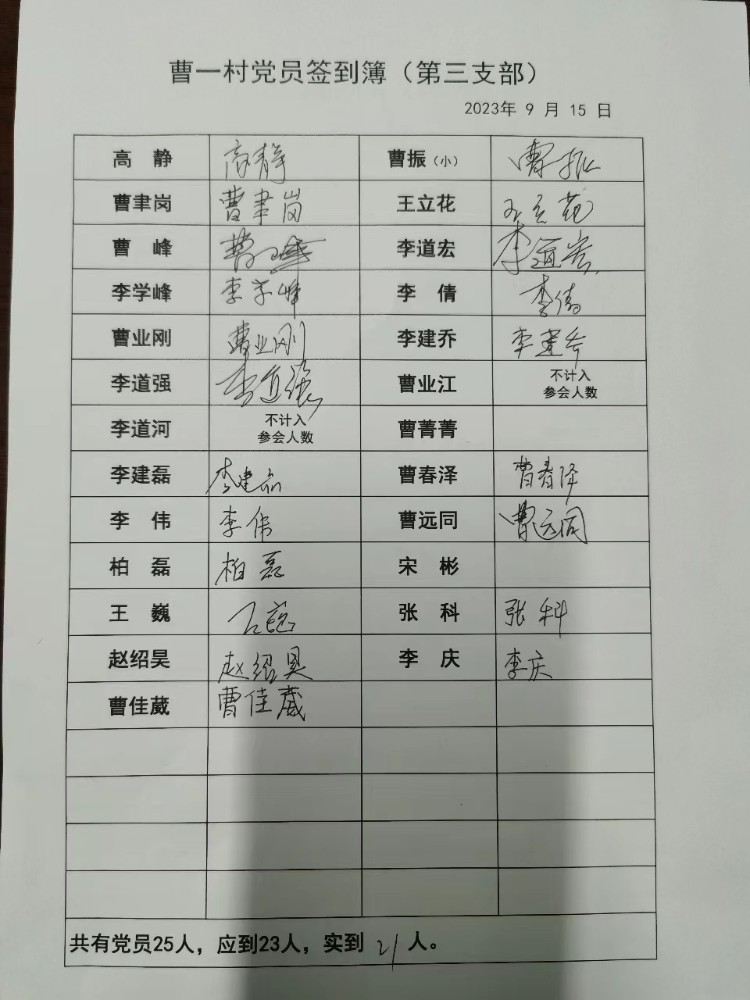 曹一村党员签到簿（第三支部）
2023年 9 月 15 日
高 静 高静 曹振（小） 曹振
曹聿岗 曹聿岗 王立花 王立花
曹 峰 曹峰 李道宏 李道宏
李学峰 李学峰 李 倩 李倩
曹业刚 曹业刚 李建乔 李建乔
李道强 李道强 曹业江 不计入
参会人数
李道河 不计入
参会人数 曹菁菁
李建磊 李建磊 曹春泽 曹春泽
李 伟 李伟 曹远同 曹远同
柏 磊 柏磊 宋 彬
王 巍 王巍 张 科 张科
赵绍昊 赵绍昊 李 庆 李庆
曹佳葳 曹佳葳
共有党员25人，应到23人，实到 21 人。